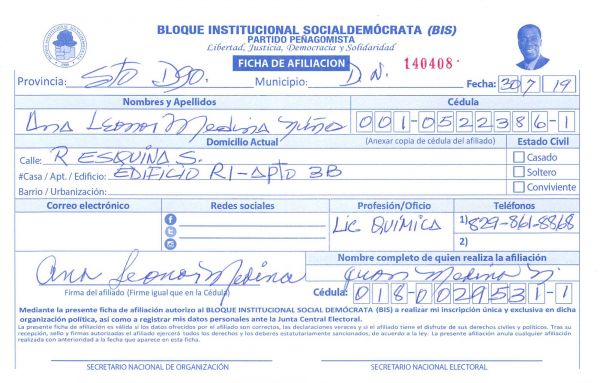 BLOQUE INSTITUCIONAL SOCIALDEMÓCRATA (BIS)
PARTIDO PEÑAGOMISTA
Libertad, Justicia, Democracia y Solidaridad
FICHA DE AFILIACION
140408
Provincia: Sto Dgo. Municipio: D.N. Fecha: 30/7/19
Nombres y Apellidos Cédula
Ana Leonor Medina Núñez 001-0522386-1
Domicilio Actual (Anexar copia de cédula del afiliado) Estado Civil
Calle: R ESQUINA S. Casado
#Casa / Apt. / Edificio: EDIFICIO R1-Apto 3B Soltero
Barrio / Urbanización: Conviviente
Correo electrónico Redes sociales Profesión/Oficio Teléfonos
Lic QUÍMICA 1) 829-861-8868
2)
Nombre completo de quien realiza la afiliación
Ana Leonor Medina Juan Medina N.
Firma del afiliado (Firme igual que en la Cédula) Cédula: 018-0029531-1
Mediante la presente ficha de afiliación autorizo al BLOQUE INSTITUCIONAL SOCIAL DEMÓCRATA (BIS) a realizar mi inscripción única y exclusiva en dicha
organización política, así como a registrar mis datos personales ante la Junta Central Electoral.
La presente ficha de afiliación es válida si los datos ofrecidos por el afiliado son correctos, las declaraciones veraces y si el afiliado tiene el disfrute de sus derechos civiles y políticos. Tras su
recepción, sello y firmas autorizadas el afiliado ejercerá todos los derechos y los deberes estatutariamente sancionados, de acuerdo a la ley. La presente afiliación anula cualquier afiliación
realizada con anterioridad a la fecha que aparece en esta ficha.
SECRETARIO NACIONAL DE ORGANIZACIÓN SECRETARIO NACIONAL ELECTORAL